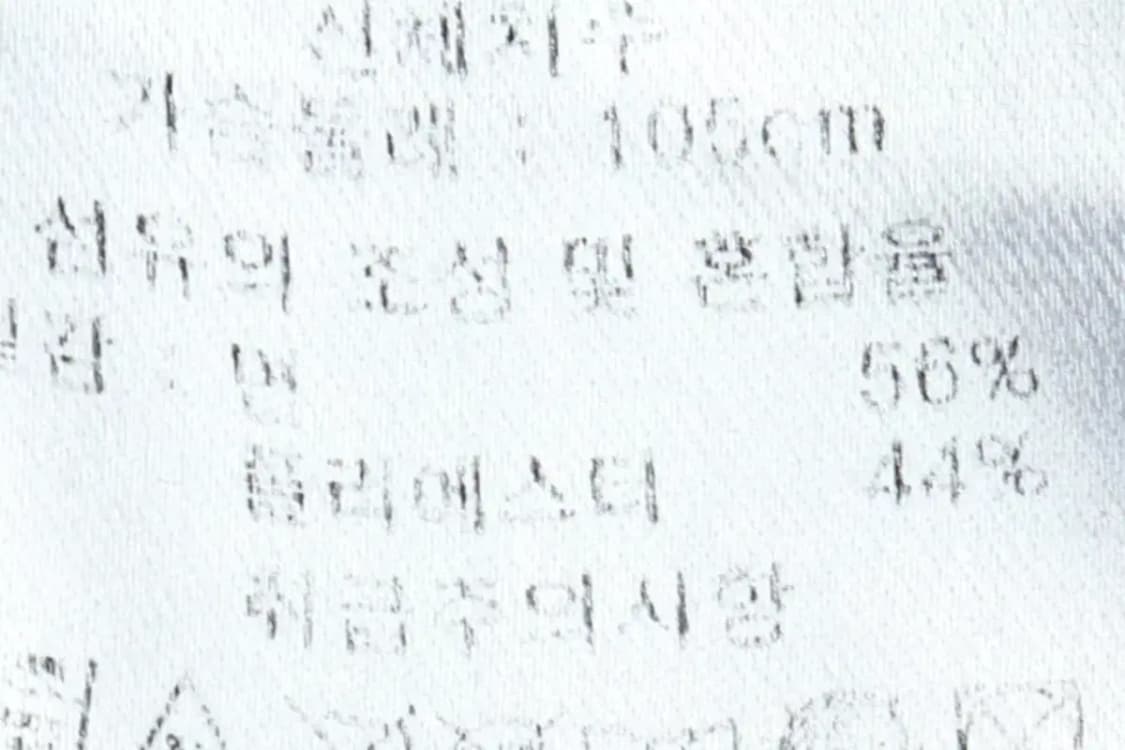 신체치수
가슴둘레 : 105cm
섬유의 조성 및 혼합율
겉감 : 면 56%
폴리에스터 44%
취급주의사항